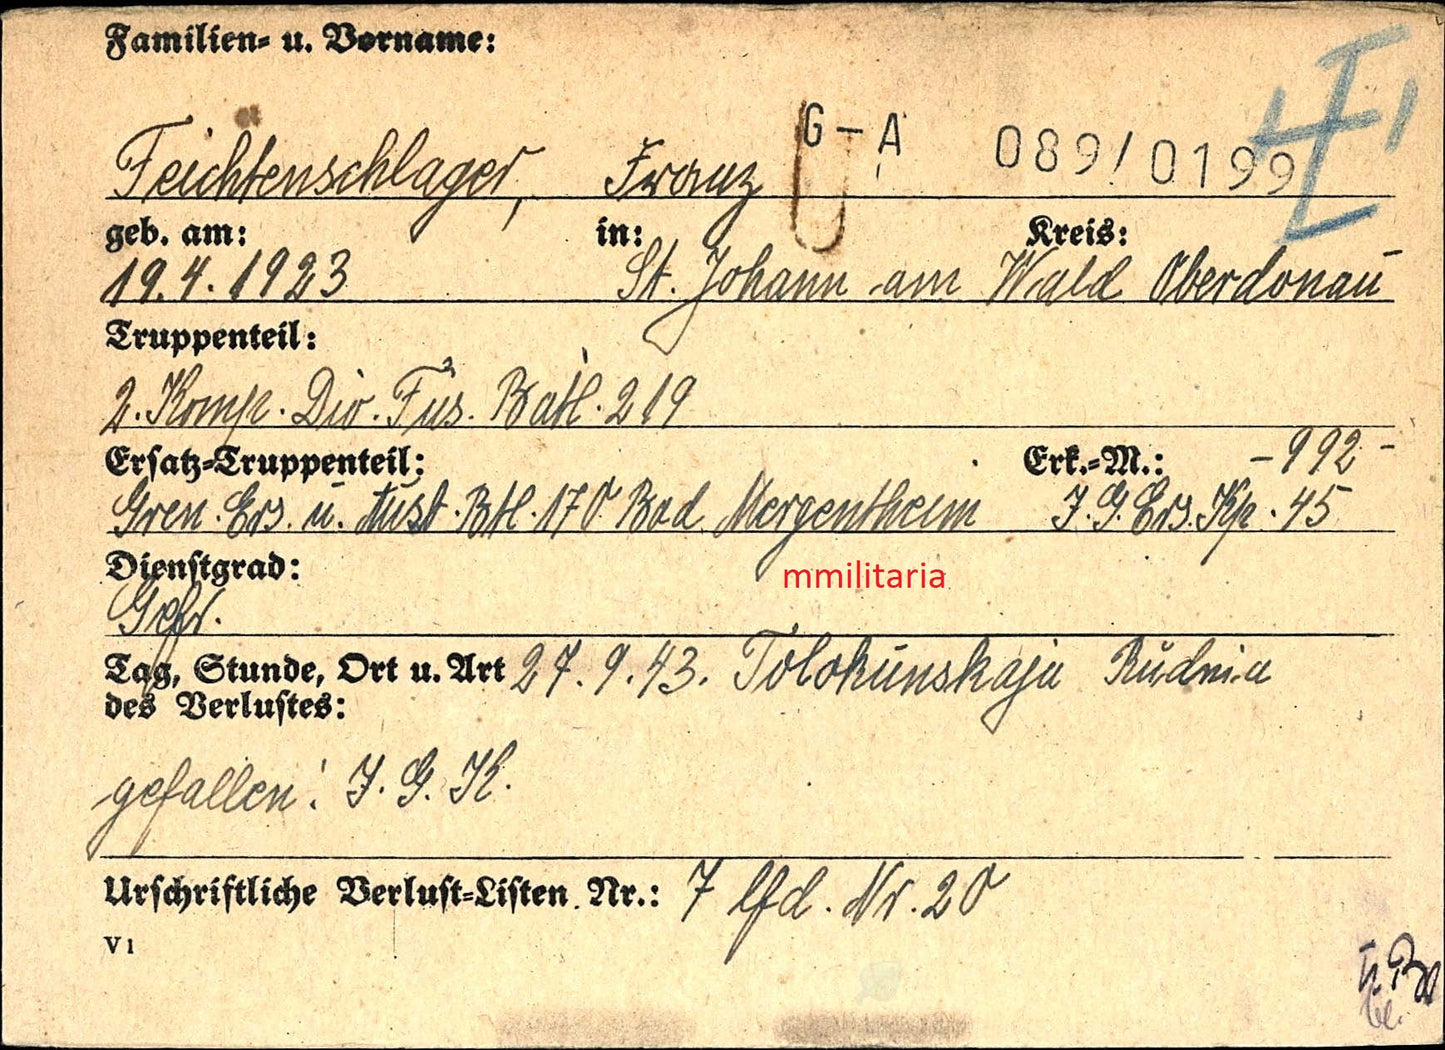 Familien- u. Vorname:
G-A 089/0199
Feichtenschlager, Franz
geb. am: in: Kreis:
19.4.1923 St. Johann am Wald Oberdonau
Truppenteil:
2. Komp. Div. Füs. Batl. 219
Ersatz-Truppenteil: Erk.-M.: -992-
Gren. Ers. u. Ausb. Btl. 170 Bad Mergentheim J.G.Ers.Kp. 45
Dienstgrad:
mmilitaria
Gefr.
Tag, Stunde, Ort u. Art 27.9.43. Tolokunskaja Rudnia
des Verlustes:
gefallen! J. G. K.
Urschriftliche Verlust-Listen Nr.: 7 lfd. Nr. 20
V 1